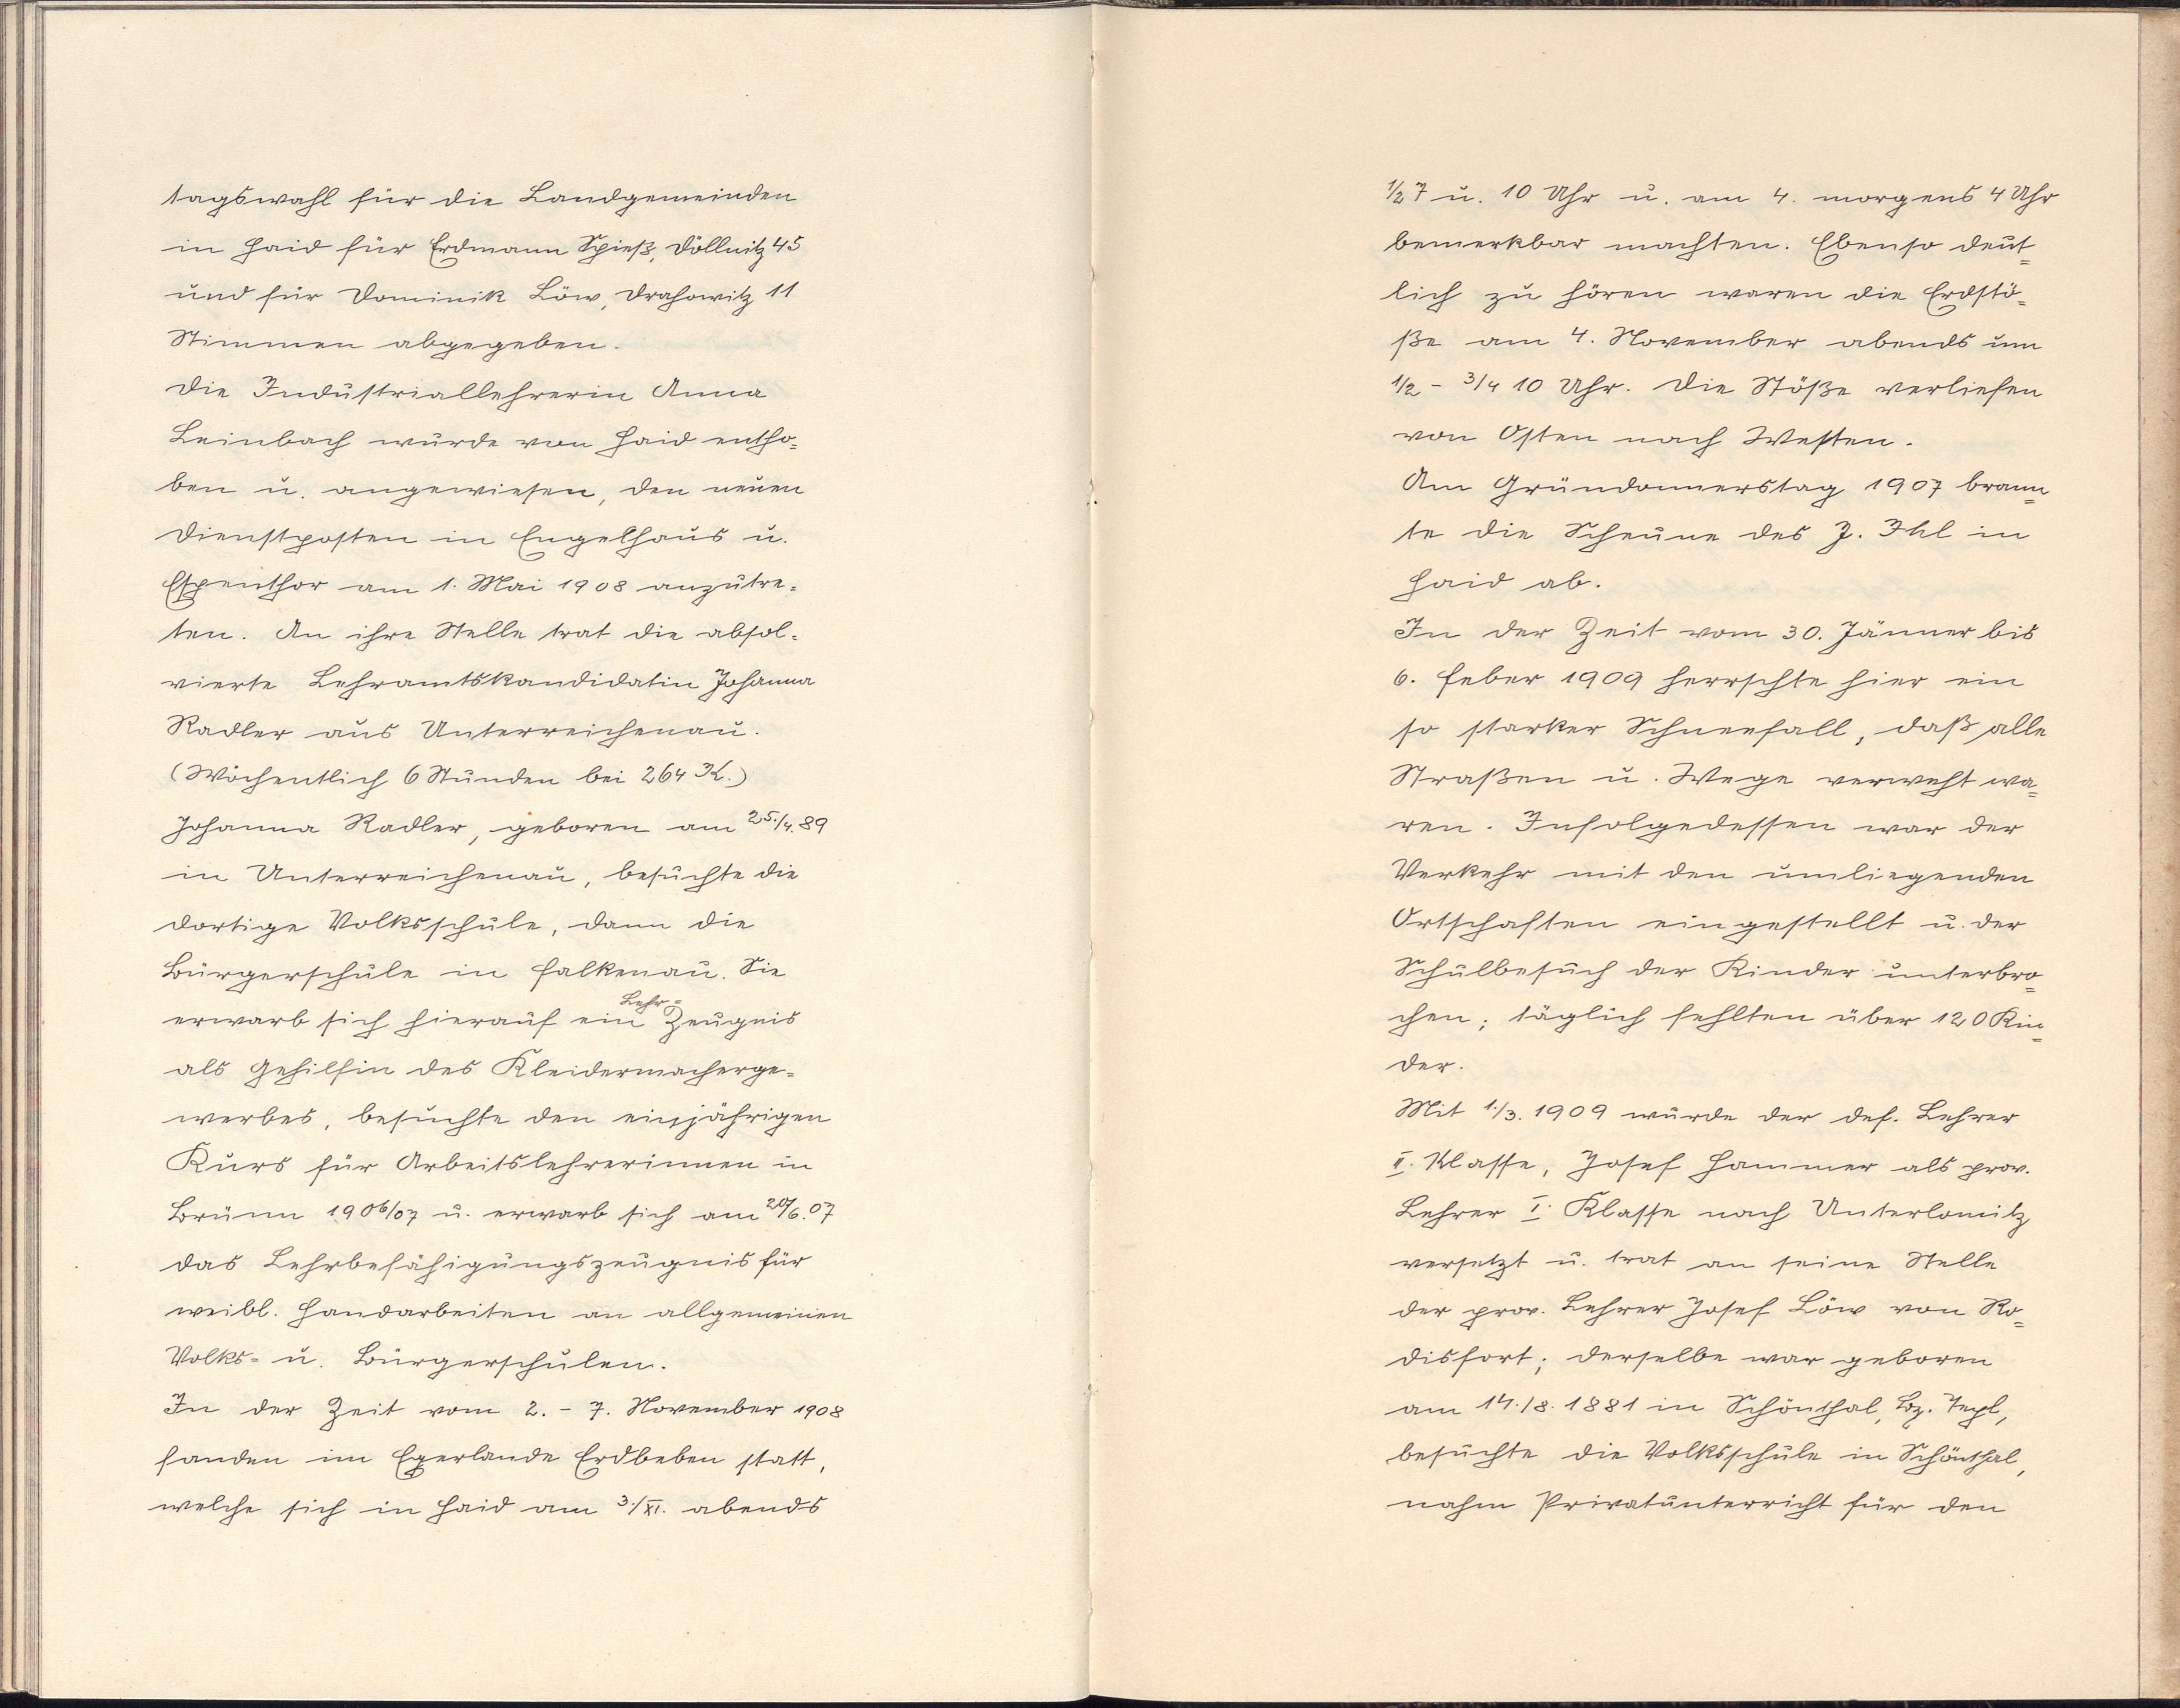 tagswahl für die Landgemeinden
in Haid für Erdmann Spieß, Döllnitz 45
und für Dominik Löw, Drahowitz 11
Stimmen abgegeben.
Die Industriallehrerin Anna
Leinbach wurde von Haid entho-
ben u. angewiesen, den neuen
Dienstposten in Engelhaus u.
Espenthor am 1. Mai 1908 anzutre-
ten. An ihre Stelle trat die absol-
vierte Lehramtskandidatin Johanna
Radler aus Unterreichenau.
(Wöchentlich 6 Stunden bei 264 K.)
Johanna Radler, geboren am 25./4. 89
in Unterreichenau, besuchte die
dortige Volksschule, dann die
Bürgerschule in Falkenau. Sie
erwarb sich hierauf ein Lehr-Zeugnis
als Gehilfin des Kleidermacherge-
werbes, besuchte den einjährigen
Kurs für Arbeitslehrerinnen in
Brünn 1906/07 u. erwarb sich am 20/6. 07
das Lehrbefähigungszeugnis für
weibl. Handarbeiten an allgemeinen
Volks- u. Bürgerschulen.
In der Zeit vom 2. - 7. November 1908
fanden im Egerlande Erdbeben statt,
welche sich in Haid am 3./XI. abends
1/2 7 u. 10 Uhr u. am 4. morgens 4 Uhr
bemerkbar machten. Ebenso deut-
lich zu hören waren die Erdstö-
ße am 4. November abends um
1/2 - 3/4 10 Uhr. Die Stöße verliefen
von Osten nach Westen.
Am Gründonnerstag 1907 brann-
te die Scheune des J. Ihl in
Haid ab.
In der Zeit vom 30. Jänner bis
6. Feber 1909 herrschte hier ein
so starker Schneefall, daß alle
Straßen u. Wege verweht wa-
ren. Infolgedessen war der
Verkehr mit den umliegenden
Ortschaften eingestellt u. der
Schulbesuch der Kinder unterbro-
chen; täglich fehlten über 120 Kin-
der.
Mit 1./3. 1909 wurde der def. Lehrer
II. Klasse, Josef Hammer als prov.
Lehrer I. Klasse nach Unterlomitz
versetzt u. trat an seine Stelle
der prov. Lehrer Josef Löw von Ro-
disfort; derselbe war geboren
am 14./8. 1881 in Schönthal, Bz. Tepl,
besuchte die Volksschule in Schönthal,
nahm Privatunterricht für den